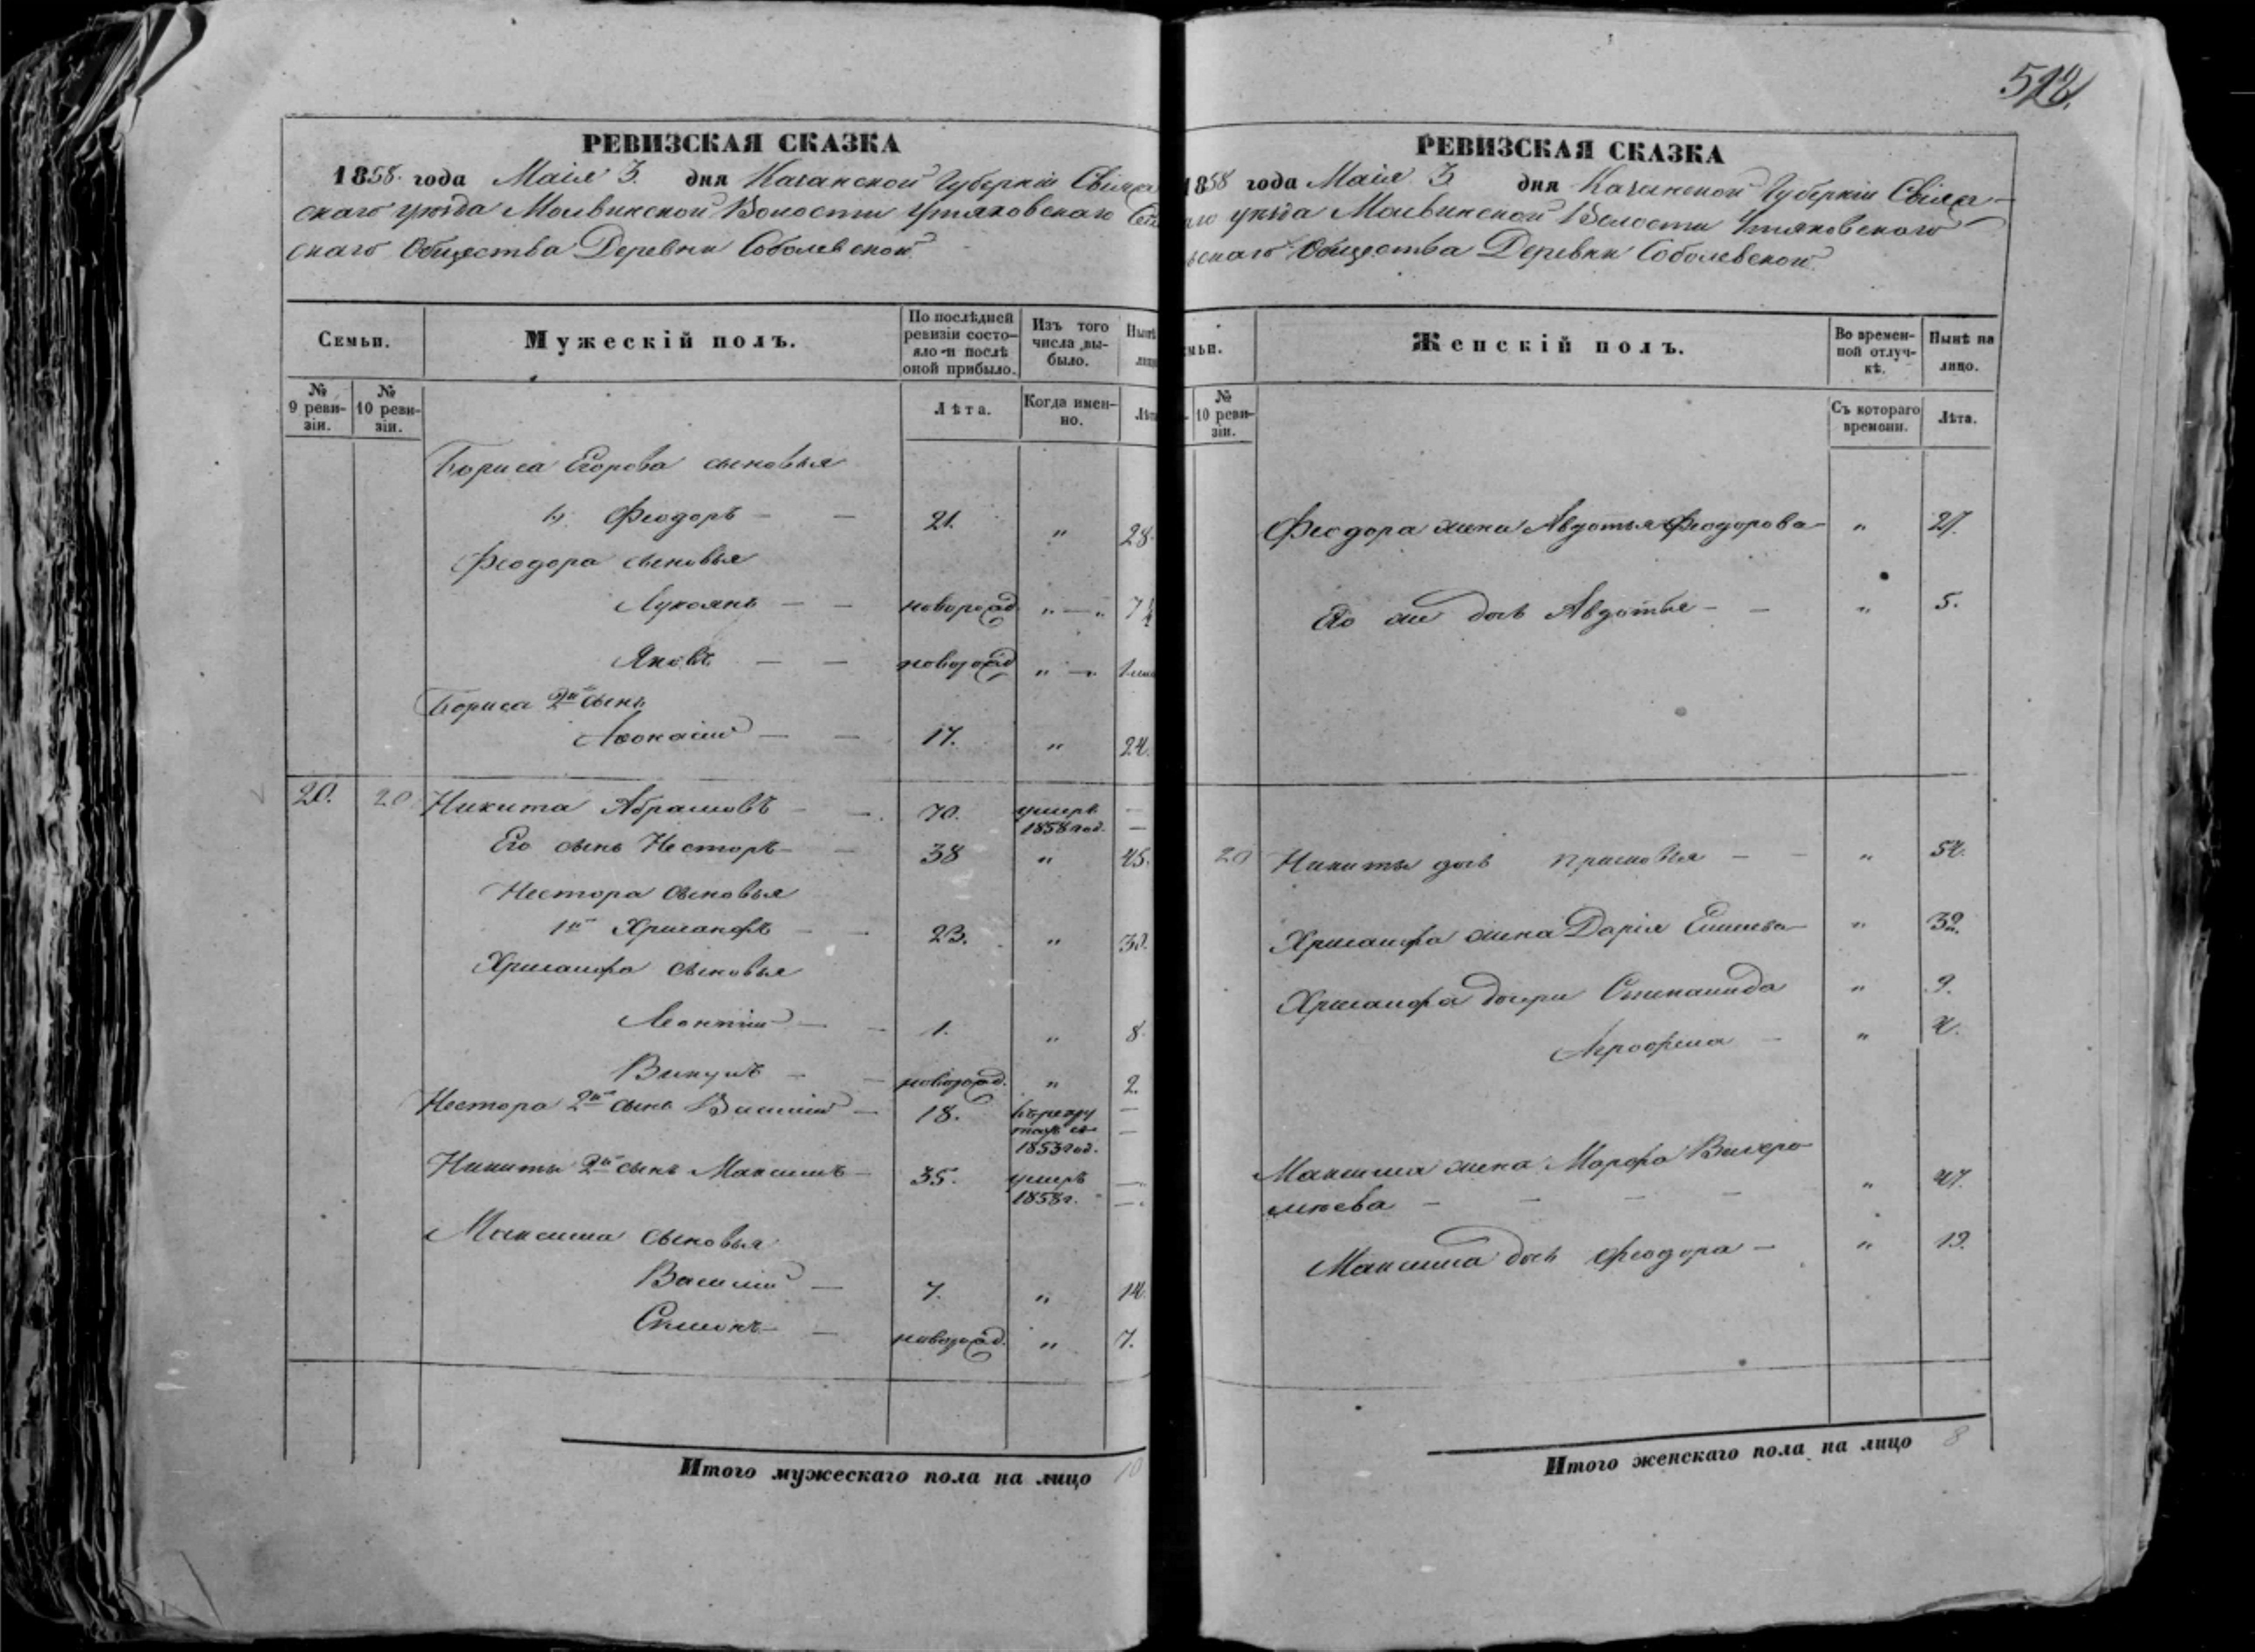 РЕВИЗСКАЯ СКАЗКА
1858 года Маія 3. дня Казанской Губерніи Свіяж
скаго уѣзда Молвинской Волости Утяковскаго Сель
скаго Общества Деревни Соболевской
Семьи.
Мужескій полъ.
По послѣдней ревизіи состо-
яло и послѣ
оной прибыло.
Изъ того
числа вы-
было.
Нынѣ
лицо
№
9 реви-
зіи.
№
10 реви-
зіи.
Лѣта.
Когда имен-
но.
Лѣта
Бориса Егорова сыновья
1й Феодоръ — — 21. " 28.
Феодора сыновья
Лукоянъ — — новорожд " — " 7
Яковъ — — новорожд " — "
Бориса 2й сынъ
Афонасій — — 17. " 24.
20. 20 Никита Абрамовъ — — 70. умеръ —
1858 год. —
Его сынъ Несторъ — — 38 " 45.
Нестора сыновья
1й Хрисанфъ — — 23. " 30.
Хрисанфа сыновья
Леонтій — — 1. " 8.
Викулъ — — новорожд. " 2.
Нестора 2й сынъ Василій — 18. въ рекру —
1853 год.
Никиты 2й сынъ Максимъ — 35. умеръ —
1858 г. —
Максима сыновья
Василій — 7. " 14.
Симонъ — — новорожд. " 7.
Итого мужескаго пола на лицо 10
512.
РЕВИЗСКАЯ СКАЗКА
1858 года Маія 3 дня Казанской Губерніи Свіяж-
аго уѣзда Молвинской Волости Утяковскаго
скаго Общества Деревни Соболевской
мьи.
Женскій полъ.
Во времен-
ной отлуч-
кѣ.
Нынѣ на
лицо.
№
10 реви-
зіи.
Съ котораго
времени.
Лѣта.
Феодора жена Авдотья Феодорова — " 27.
Его же дочь Авдотья — — " 5.
20 Никиты дочь Прасковья — — " 54.
Хрисанфа жена Дарія " 32.
Хрисанфа дочери Степанида " 9.
Агрофена — " 4.
Максима жена Марфа Варѳоло
мѣева — — — — " 47.
Максима дочь Феодора — " 19.
Итого женскаго пола на лицо 8